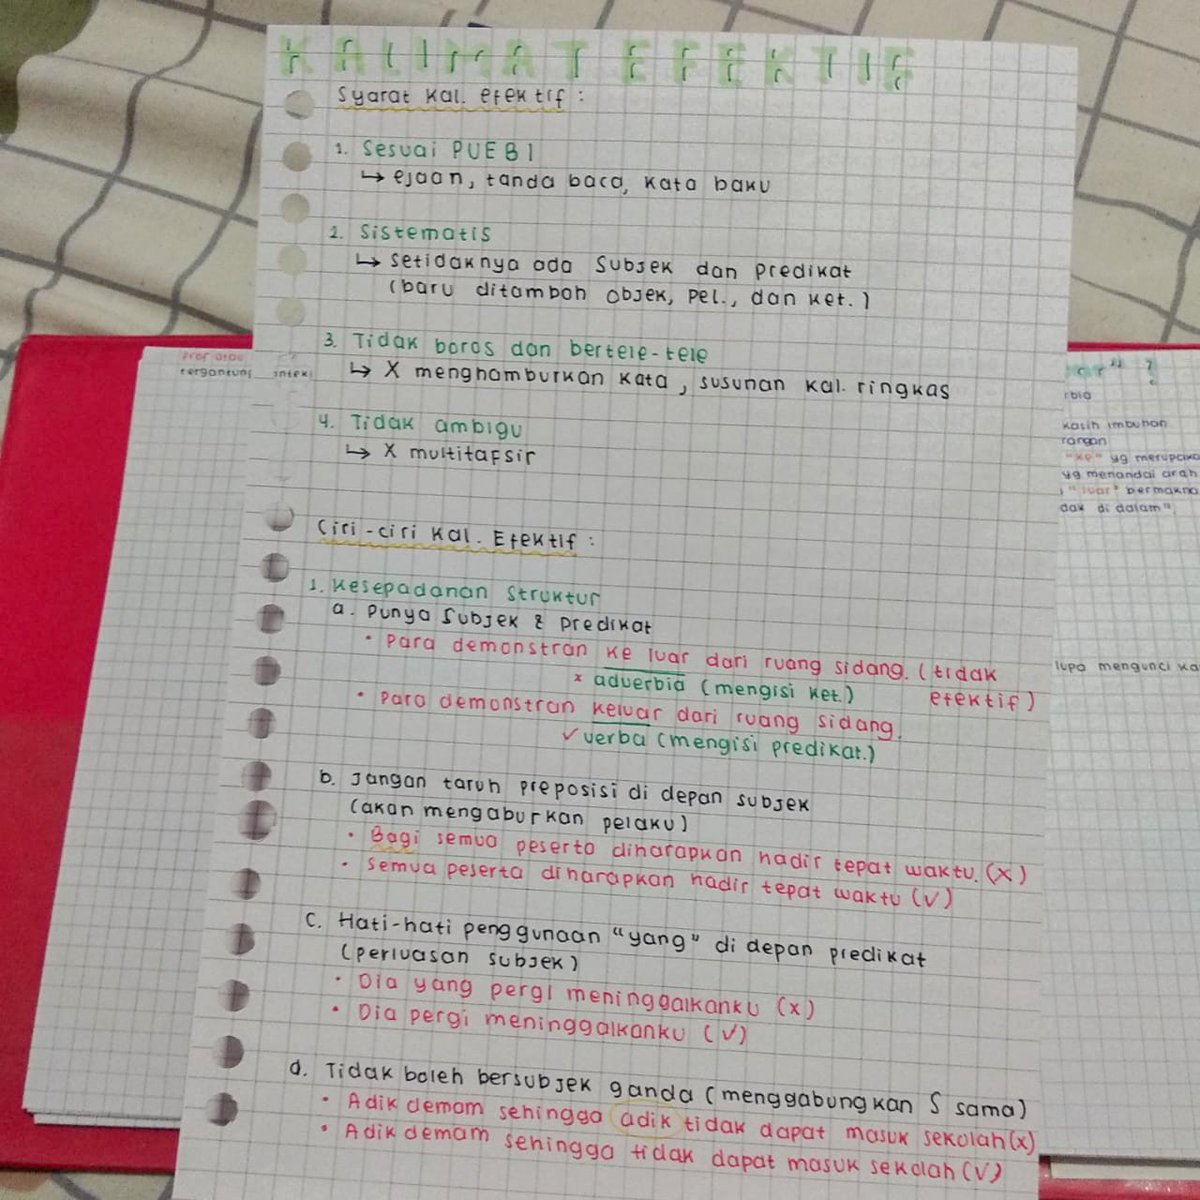 KALIMAT EFEKTIF
Syarat kal. efektif :
1. Sesuai PUEBI
↳ ejaan, tanda baca, kata baku
2. Sistematis
↳ setidaknya ada Subjek dan Predikat
(baru ditambah objek, pel., dan ket.)
3. Tidak boros dan bertele-tele
↳ X menghamburkan kata, susunan kal. ringkas
4. Tidak ambigu
↳ X multitafsir
Ciri-ciri kal. Efektif :
1. Kesepadanan Struktur
a. Punya Subjek & Predikat
• Para demonstran ke luar dari ruang sidang. (tidak
efektif)
x adverbia (mengisi ket.)
• Para demonstran keluar dari ruang sidang.
✓ verba (mengisi predikat.)
b. Jangan taruh preposisi di depan subjek
(akan mengaburkan pelaku)
• Bagi semua peserta diharapkan hadir tepat waktu. (X)
• Semua peserta diharapkan hadir tepat waktu (V)
c. Hati-hati penggunaan "yang" di depan predikat
(perluasan subjek)
• Dia yang pergi meninggalkanku (x)
• Dia pergi meninggalkanku (V)
d. Tidak boleh bersubjek ganda (menggabungkan S sama)
• Adik demam sehingga adik tidak dapat masuk sekolah (x)
• Adik demam sehingga tidak dapat masuk sekolah (V)
atau
tergantung
kasih imbuhan
"ke" yg merupaka
yg menandai arah
"luar" bermakna
di dalam"
lupa mengunci ka